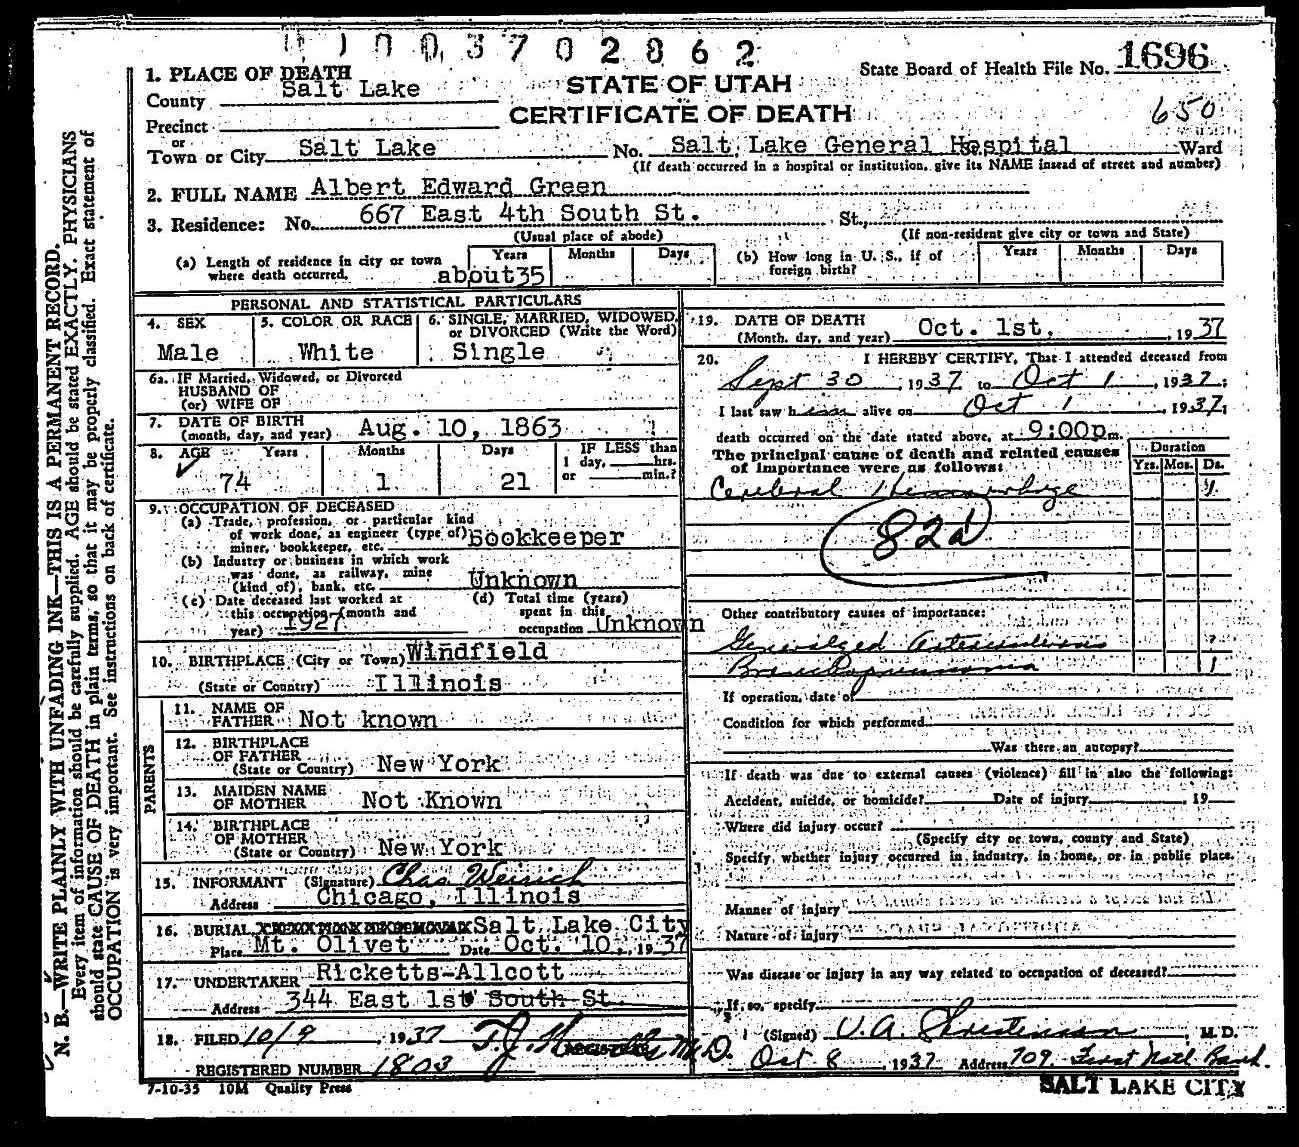 01003702862
1696
State Board of Health File No.
1. PLACE OF DEATH
STATE OF UTAH
County Salt Lake
CERTIFICATE OF DEATH
650
Precinct
or
Town or City Salt Lake No. Salt Lake General Hospital Ward
(If death occurred in a hospital or institution, give its NAME insead of street and number)
2. FULL NAME Albert Edward Green
3. Residence: No. 667 East 4th South St. St.,
(Usual place of abode) (If non-resident give city or town and State)
(a) Length of residence in city or town where death occurred. Years about 35 Months Days
(b) How long in U. S., if of foreign birth? Years Months Days
PERSONAL AND STATISTICAL PARTICULARS
4. SEX Male
5. COLOR OR RACE White
6. SINGLE, MARRIED, WIDOWED, or DIVORCED (Write the Word) Single
6a. IF Married, Widowed, or Divorced
HUSBAND OF
(or) WIFE OF
7. DATE OF BIRTH
(month, day, and year) Aug. 10, 1863
8. AGE Years Months Days IF LESS than
1 day, hrs.
or min.?
74 1 21
9. OCCUPATION OF DECEASED
(a) Trade, profession, or particular kind
of work done, as engineer (type of)
miner, bookkeeper, etc. Bookkeeper
(b) Industry or business in which work
was done, as railway, mine
(kind of), bank, etc. Unknown
(c) Date deceased last worked at
this occupation (month and
year) 1927
(d) Total time (years)
spent in this
occupation Unknown
10. BIRTHPLACE (City or Town) Windfield
(State or Country) Illinois
PARENTS
11. NAME OF
FATHER Not known
12. BIRTHPLACE
OF FATHER
(State or Country) New York
13. MAIDEN NAME
OF MOTHER Not Known
14. BIRTHPLACE
OF MOTHER
(State or Country) New York
15. INFORMANT (Signature) Chas Weirich
Address Chicago, Illinois
16. BURIAL Salt Lake City
Place Mt. Olivet Date Oct. 10, 1937
17. UNDERTAKER Ricketts-Allcott
Address 344 East 1st South St.
18. FILED 10/9, 1937
REGISTERED NUMBER 1803
7-10-35 10M Quality Press
19. DATE OF DEATH
(Month, day, and year) Oct. 1st, 1937
20. I HEREBY CERTIFY, That I attended deceased from
Sept 30, 1937 to Oct 1, 1937;
I last saw him alive on Oct 1, 1937;
death occurred on the date stated above, at 9:00pm.
The principal cause of death and related causes
of importance were as follows:
Duration
Yrs. Mos. Ds.
Cerebral Hemorrhage 1
82a
Other contributory causes of importance:
Generalized Arteriosclerosis ?
Bronchopneumonia 1
If operation, date of
Condition for which performed
Was there an autopsy?
If death was due to external causes (violence) fill in also the following:
Accident, suicide, or homicide? Date of injury, 19
Where did injury occur?
(Specify city or town, county and State)
Specify whether injury occurred in industry, in home, or in public place.
Manner of injury
Nature of injury
Was disease or injury in any way related to occupation of deceased?
If so, specify
(Signed) U. A. Christenson, M. D.
Oct 8, 1937 Address 709 First Natl Bank.
SALT LAKE CITY
N. B.—WRITE PLAINLY WITH UNFADING INK—THIS IS A PERMANENT RECORD.
Every item of information should be carefully supplied. AGE should be stated EXACTLY. PHYSICIANS
should state CAUSE OF DEATH in plain terms, so that it may be properly classified. Exact statement of
OCCUPATION is very important. See instructions on back of certificate.